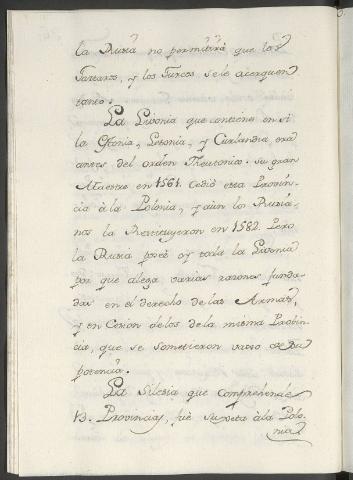 la Rusia no permitirà que los
Tartaros, y los Turcos se le acerquen
tanto.
La Livonia que contiene en si
la Estonia, Letonia, y Curlandia, era
antes del orden Theutonico. Su gran
Maestro en 1561. Cediò esta Provin-
cia à la Polonia, y aùn los Rusia-
nos la Restituyeron en 1582. Pero
la Rusia poseè oy toda la Livonia
por que alega varias razones funda-
das en el derecho de las Armas,
y en Cesion de los de la misma Probin-
cia, que se sometieron vajo de su
potencia.
La Silesia que comprehende
13. Provincias, fuè sujeta à la Polo-
nia